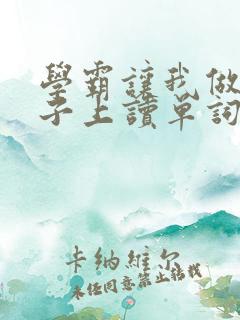 學霸讓我做
子上讀單詞
卡納維尔
未经同意禁止转载